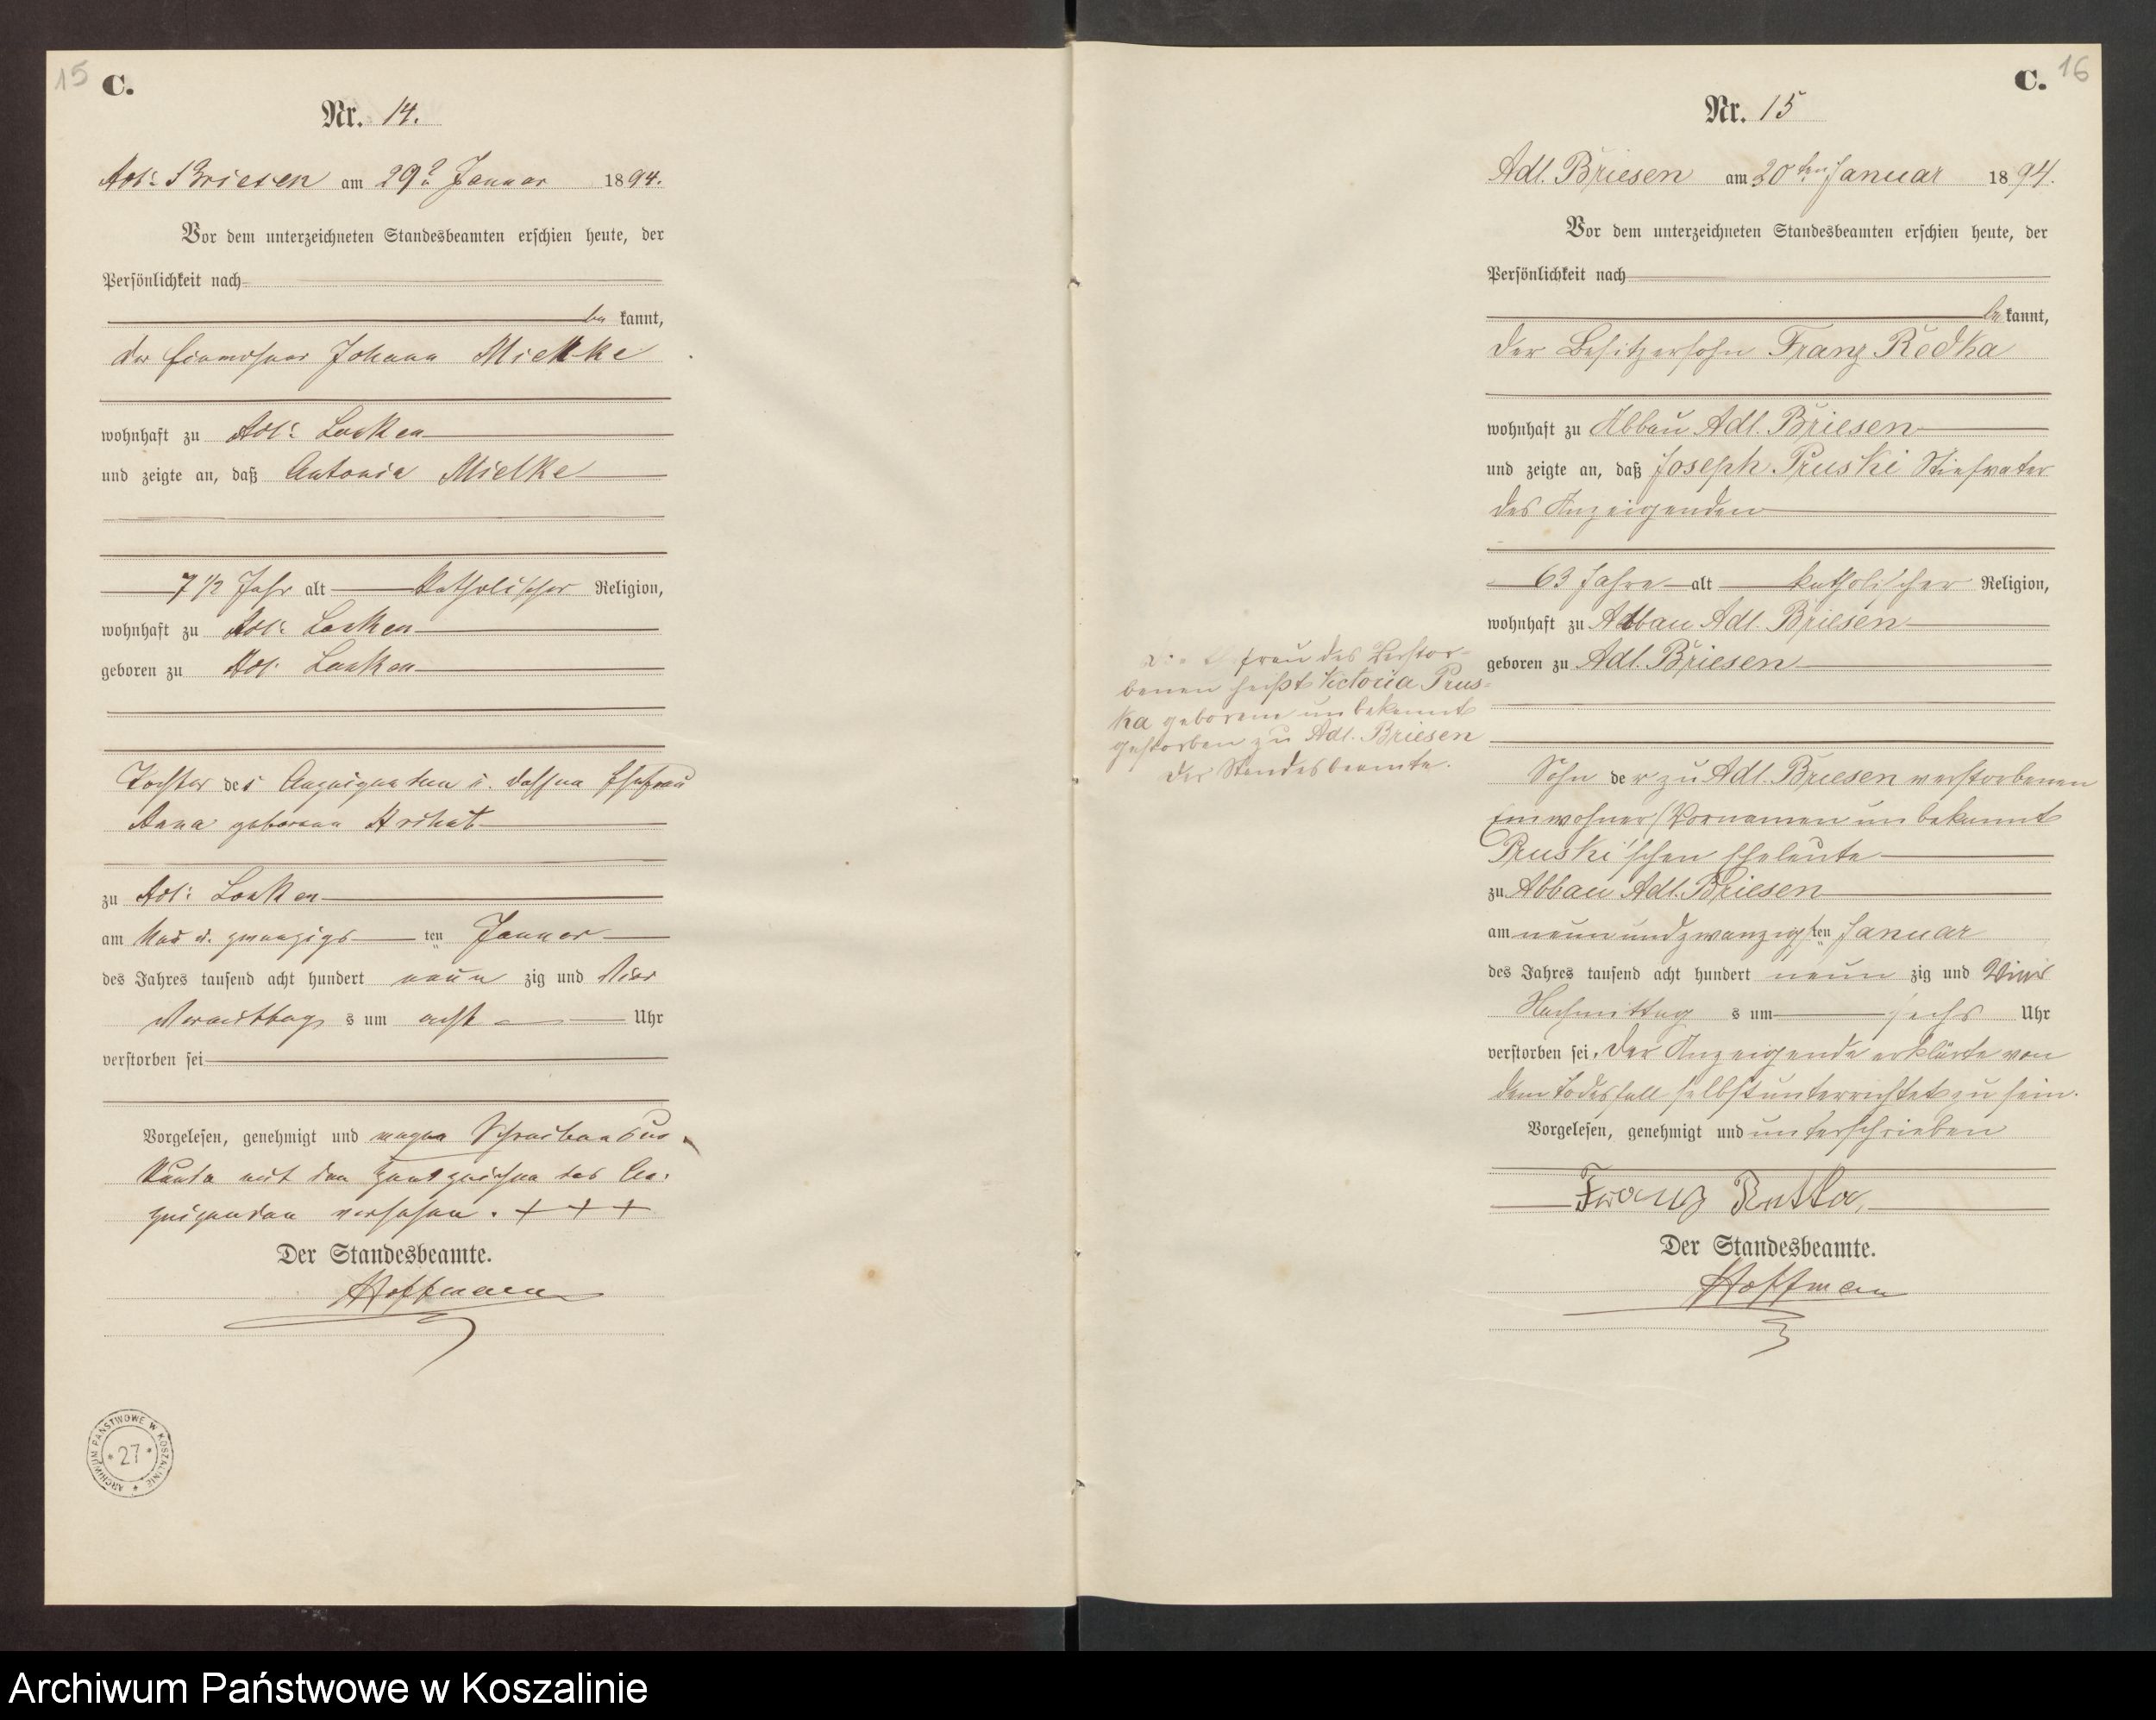 15
C.
Nr. 14.
Adl: Briesen am 29t Januar 1894.
Vor dem unterzeichneten Standesbeamten erschien heute, der
Persönlichkeit nach
be kannt,
der Einwohner Johann Mielke
wohnhaft zu Adl: Lonken
und zeigte an, daß Antonia Mielke
7 1/2 Jahr alt katholischer Religion,
wohnhaft zu Adl: Lonken
geboren zu Adl. Lonken
Tochter des Anzeigenden u. dessen Ehefrau
Anna geborenen
zu Adl: Lonken
am zwanzigs ten Januar
des Jahres tausend acht hundert neun zig und vier
Vormittag s um acht Uhr
verstorben sei
Vorgelesen, genehmigt und wegen Schreibensun
kunde mit den Handzeichen des An-
zeigenden versehen. + + +
Der Standesbeamte.
Hoffmann
ARCHIWUM PAŃSTWOWE W KOSZALINIE
* 27 *
16
C.
Nr. 15
Adl. Briesen am ten Januar 1894.
Vor dem unterzeichneten Standesbeamten erschien heute, der
Persönlichkeit nach
be kannt,
der Besitzersohn Franz Redka
wohnhaft zu Abbau Adl. Briesen
und zeigte an, daß Joseph Pruski Stiefvater
des Anzeigenden
63 Jahre alt katholischer Religion,
wohnhaft zu Abbau Adl. Briesen
geboren zu Adl. Briesen
Die Ehefrau des Verstor-
benen heißt Victoria Prus-
ka geborene unbekannt
gestorben zu Adl. Briesen
Der Standesbeamte.
Sohn der zu Adl. Briesen verstorbenen
Einwohner (Vornamen unbekannt
Pruski'schen Eheleute
zu Abbau Adl. Briesen
am neunundzwanzigsten Januar
des Jahres tausend acht hundert neun zig und Vier
Nachmittag s um sechs Uhr
verstorben sei. Der Anzeigende erklärte von
dem Todesfall selbst unterrichtet zu sein.
Vorgelesen, genehmigt und unterschrieben
Franz
Der Standesbeamte.
Hoffmann
Archiwum Państwowe w Koszalinie